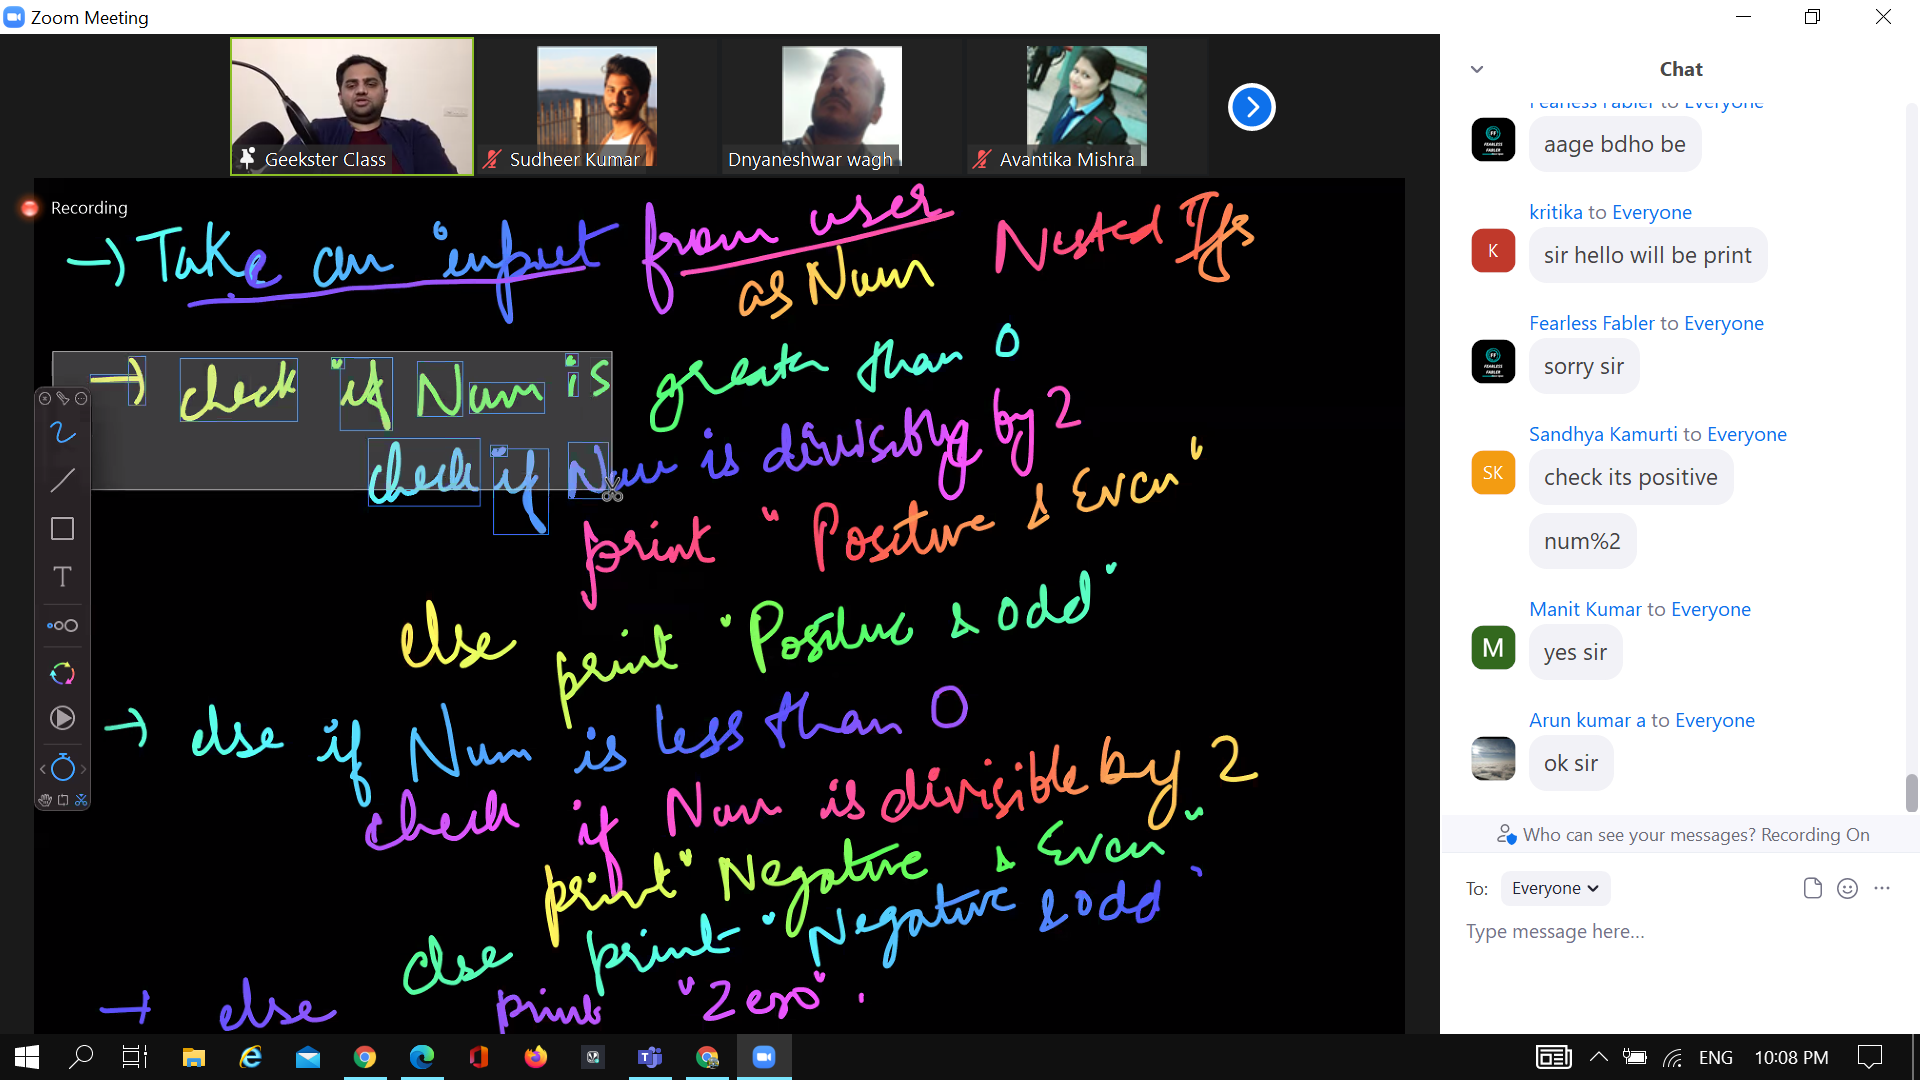 Zoom Meeting
Geekster Class
Sudheer Kumar
Dnyaneshwar wagh
Avantika Mishra
Recording
→ Take an input from user Nested Ifs
as Num
→ check if Num is greater than 0
check if Num is divisibly by 2
print " Positive & Even"
else print "Positive & odd"
→ else if Num is less than 0
check if Num is divisible by 2
print "Negative & Even"
else print "Negative & odd"
→ else print "Zero".
T
Chat
Fearless Fabler to Everyone
aage bdho be
kritika to Everyone
K
sir hello will be print
Fearless Fabler to Everyone
sorry sir
Sandhya Kamurti to Everyone
SK
check its positive
num%2
Manit Kumar to Everyone
M
yes sir
Arun kumar a to Everyone
ok sir
Who can see your messages? Recording On
To: Everyone
Type message here...
ENG 10:08 PM